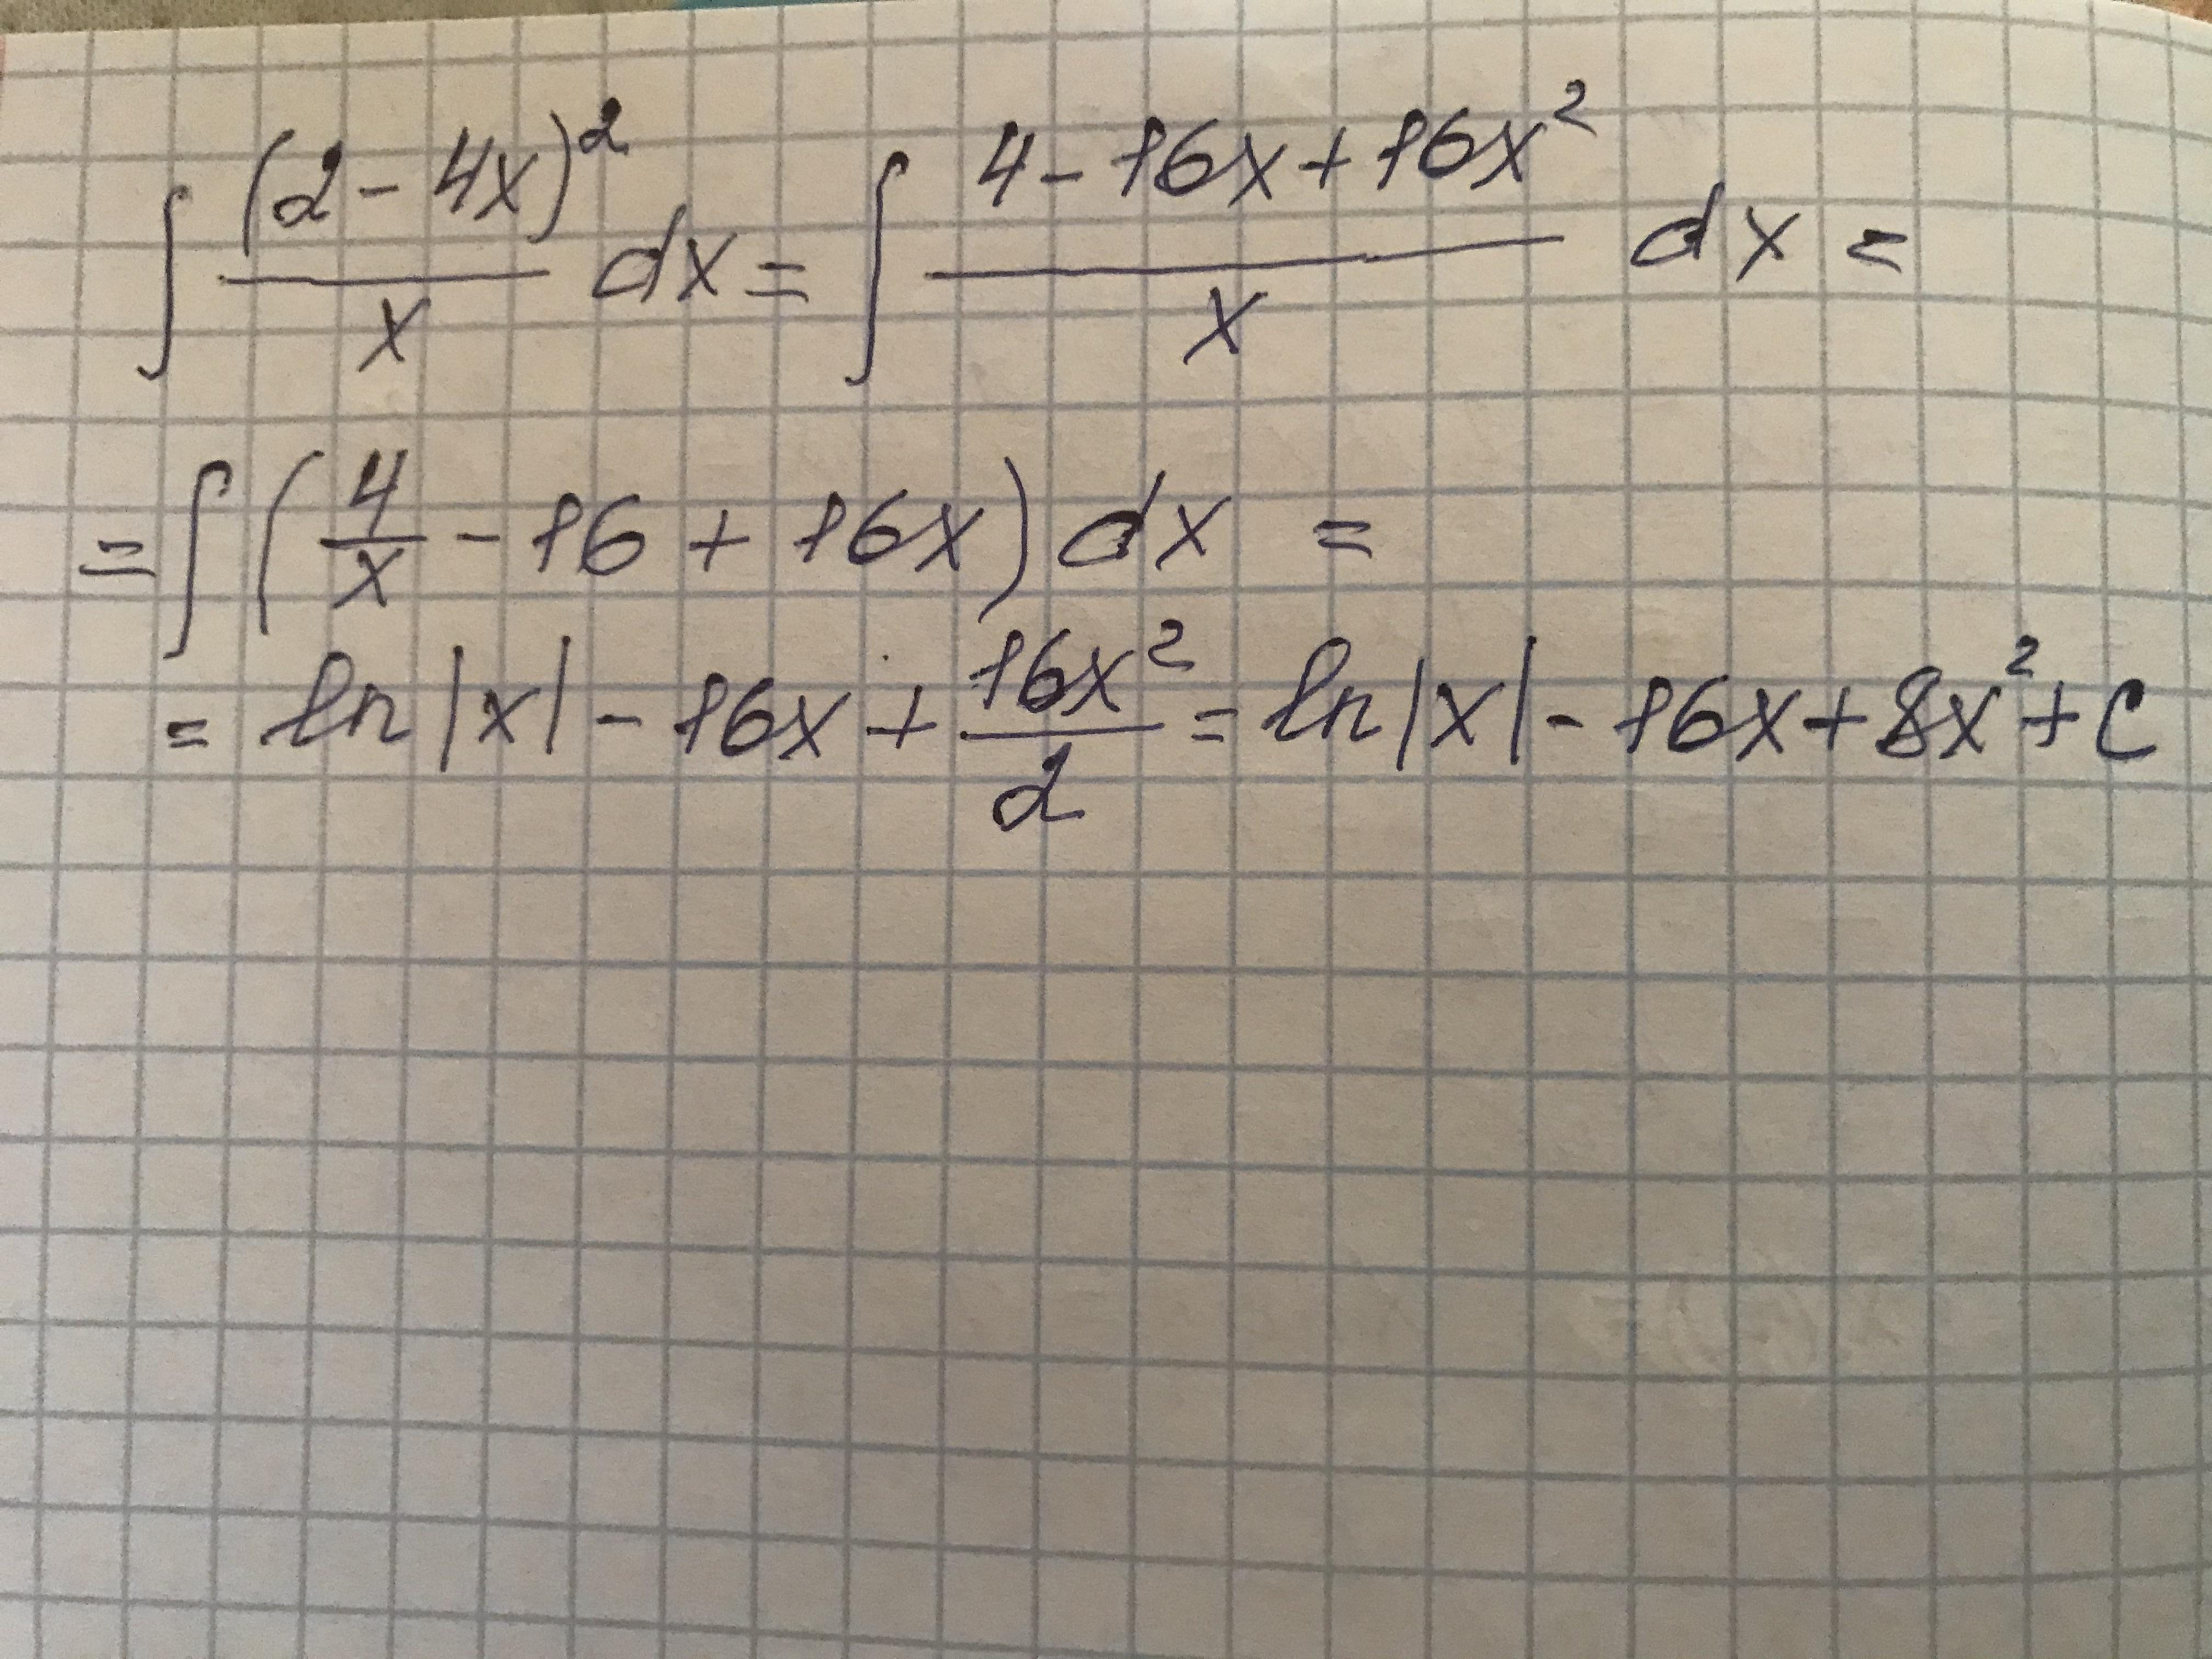 ∫ (2 - 4x)² / x dx = ∫ (4 - 16x + 16x²) / x dx =
= ∫ (4/x - 16 + 16x) dx =
= ln|x| - 16x + 16x²/2 = ln|x| - 16x + 8x² + C